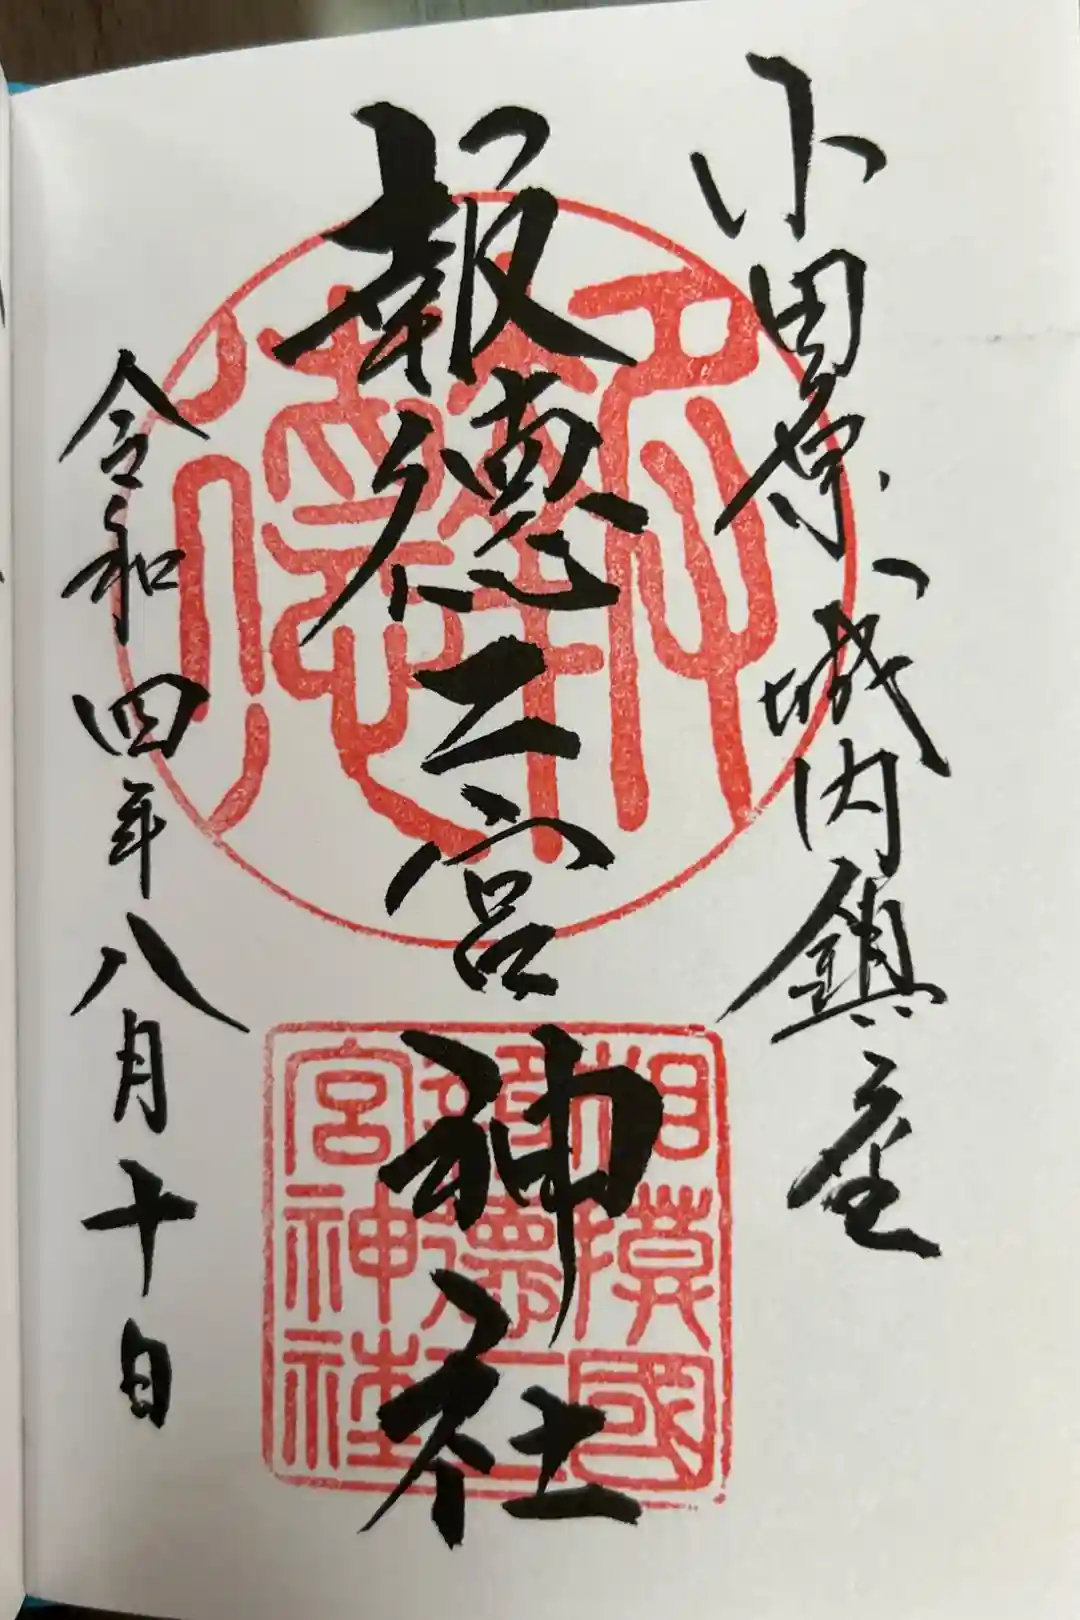 小田原城内鎮座
報徳二宮神社
令和四年八月十日
相模國
報徳二
宮神社